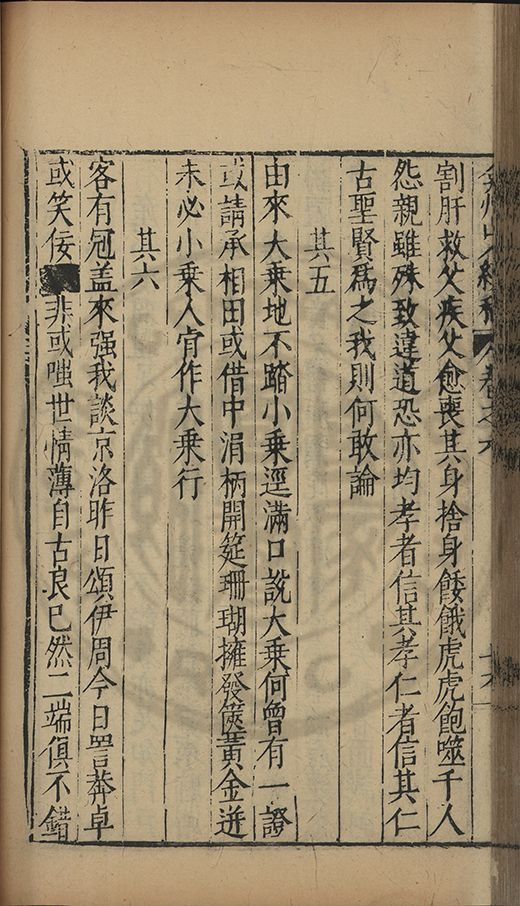 弇州山人續稿 卷之六
割肝救父疾父愈喪其身捨身餧餓虎虎飽噬千人
怨親雖殊致違道恐亦均孝者信其孝仁者信其仁
古聖賢爲之我則何敢論
其五
由來大乗地不踏小乗逕滿口說大乗何曾有一證
或請承相田或借中涓柄開筵珊瑚擁發篋黃金迸
未必小乗人肯作大乗行
其六
客有冠盖來强我談京洛昨日頌伊周今日詈莽卓
或笑佞非或嗤世情薄自古良已然二端俱不錯